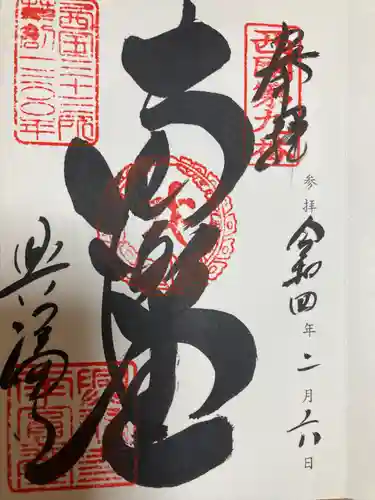 奉拝
西国第九番
参拝 令和四年二月六日
南圓堂
西国三十三所
草創一三〇〇年
興福寺